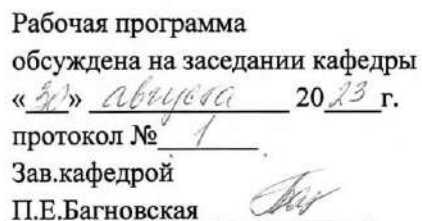 Рабочая программа
обсуждена на заседании кафедры
«30» августа 2023 г.
протокол № 1
Зав.кафедрой
П.Е.Багновская